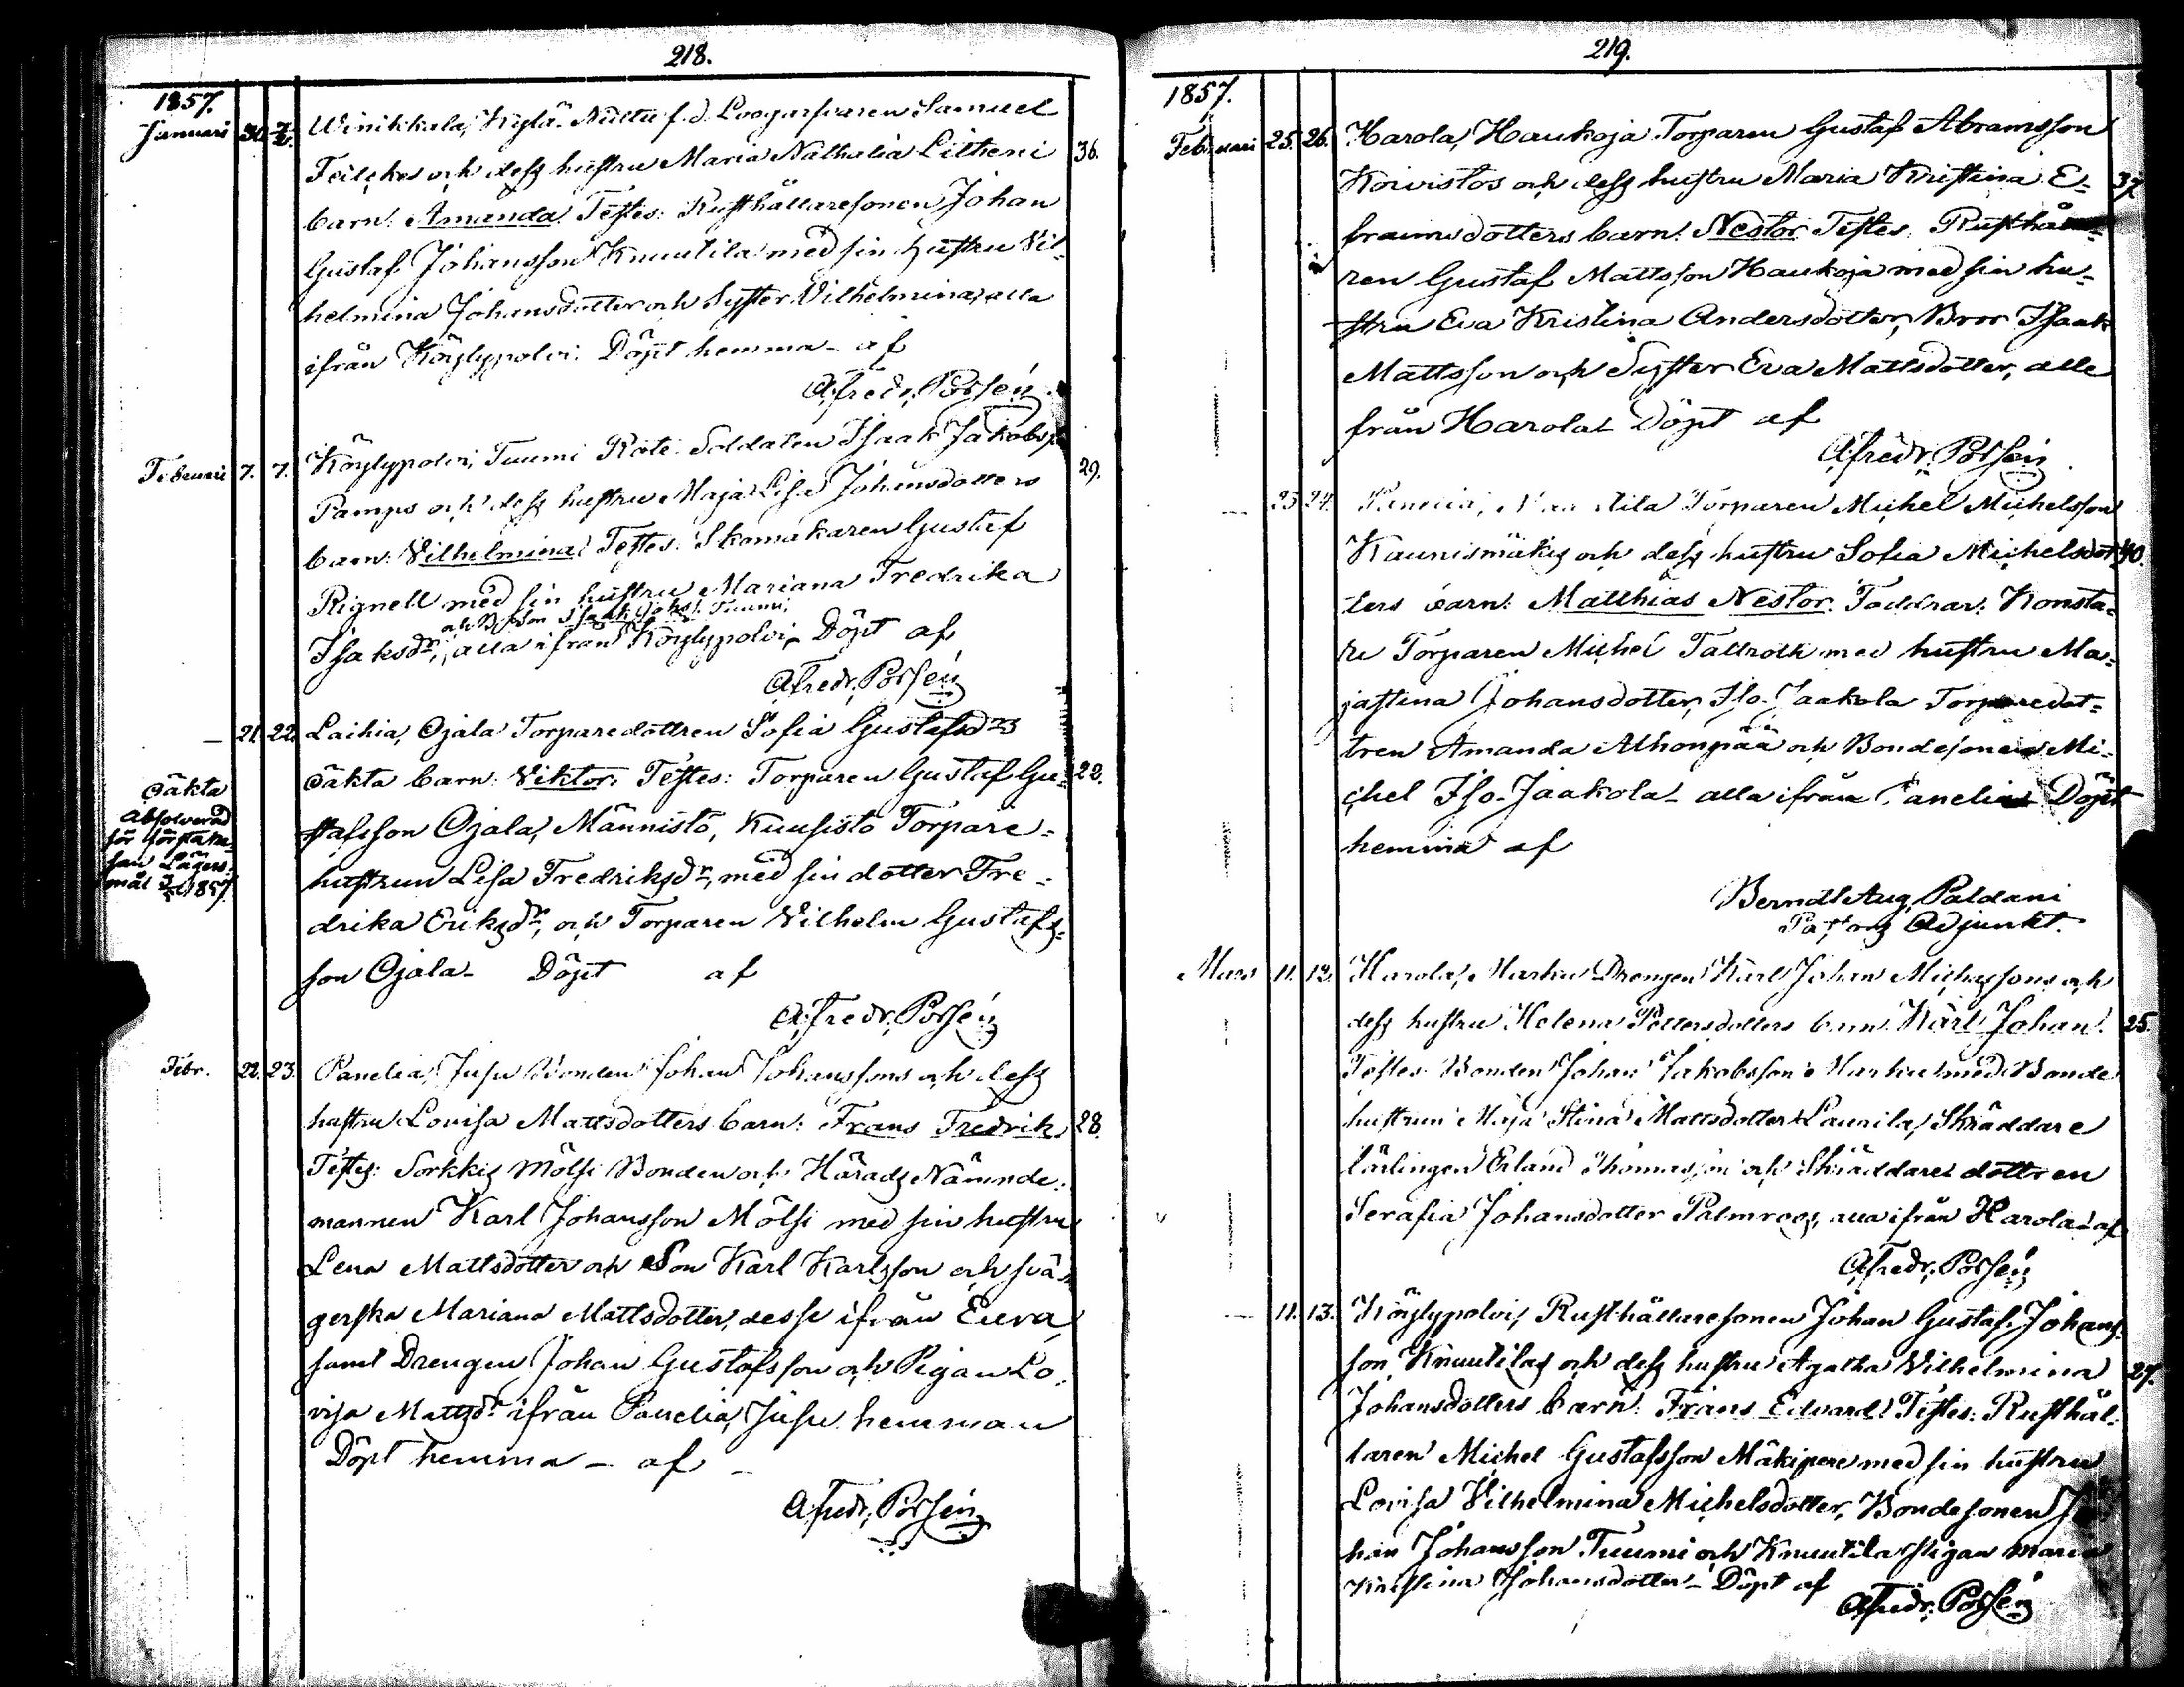 218.
1857.
Januari 30. 7/2. Winikkala, Kylä-Nuttu f.d. Samuel
och dess hustru Maria Nathalia 36.
barn: Amanda. Testes: Rusthållaresonen Johan
Gustaf Johansson Knuutila med sin hustru Vil-
helmina Johansdotter och Syster Vilhelmina, alla
ifrån Köylypolvi. Döpt hemma - af
A. Fredr. Porsén.
Februari 7. 7. Köylypolvi, Tuumi Rote Soldaten Isaak Jakobss.
Pamps och dess hustru Maja Lisa Johansdotters 29.
barn: Vilhelmina. Testes: Skomakaren Gustaf
Rignell med sin hustru Mariana Fredrika
och Isaak Tuumi,
Isaksdr, alla ifrån Köylypolvi - Döpt af
A. Fredr. Porsén
— 21. 22. Laihia, Ojala Torparedottren Sofia Gustafsdrs
oäkta barn: Viktor. Testes: Torparen Gustaf Gu- 22.
oäkta
Absolverad
för första re-
san Lägers-
mål 1857.
stafsson Ojala, Männistö, Kuusisto Torpare-
hustrun Lisa Fredriksdr, med sin dotter Fre-
drika Eriksdr, och Torparen Vilhelm Gustafs-
son Ojala - Döpt af
A. Fredr. Porsén
Febr. 22. 23. Panelia, Jusu Bonden Johan Johanssons och dess
hustru Lovisa Mattsdotters barn: Frans Fredrik 28.
Testes: Sorkkis Mölsi Bonden och Härads Nämnde-
mannen Karl Johansson Mölsi med sin hustru
Lena Mattsdotter och Son Karl Karlsson och svä-
gerska Mariana Mattsdotter, desse ifrån Eura,
samt Drengen Johan Gustafsson och Pigan Lo-
visa Mattsdr ifrån Panelia, Jusu hemman
Döpt hemma - af -
A. Fredr. Porsén
219.
1857.
Februari 25. 26. Harola, Haukoja Torparen Gustaf Abramsson
Koivistos och dess hustru Maria Kristina E- 37.
fraimsdotters barn: Nestor. Testes: Rusthålla-
ren Gustaf Mattsson Haukoja med sin hu-
stru Eva Kristina Andersdotter, Bror Isaak
Mattsson och Syster Eva Mattsdotter, alle
från Harola - Döpt af
A. Fredr. Porsén
— 23. 24. Panelia, Torparen Michel Michelsson
Kaunismäkis och dess hustru Sofia Michelsdot- 40.
ters barn: Matthias Nestor. Faddrar: Konsta-
re Torparen Michel Tallroth med hustru Ma-
jastina Johansdotter, Iso-Jaakola Torparedot-
tren Amanda Alhonpää och Bondesonen Mi-
chel Iso-Jaakola - alla ifrån Panelia - Döpt
hemma af
Berndt Aug. Paldani
Past. Adjunkt.
Mars 11. 12. Harola, Harhu Drengen Karl Johan och
dess hustru Helena Pettersdotters barn: Karl Johan. 25.
Testes: Bonden Johan Jakobsson Harhu med Bonde
hustrun Maja Stina Mattsdotter Laurila, Skräddare
lärlingen Erland Thomasson och Skräddare dottren
Serafia Johansdotter Palmroos, alla ifrån Harola - af
A. Fredr. Porsén
— 11. 13. Köylypolvi, Rusthållaresonen Johan Gustaf Johans-
son Knuutilas och dess hustru Agatha Vilhelmina 27.
Johansdotters barn: Frans Edvard. Testes: Rusthål-
laren Michel Gustafsson Mäkipere med sin hustru
Lovisa Vilhelmina Michelsdotter, Bondesonen Jo-
han Johansson Tuumi och Knuutila Pigan Maria
Kristina Johansdotter - Döpt af
A. Fredr. Porsén